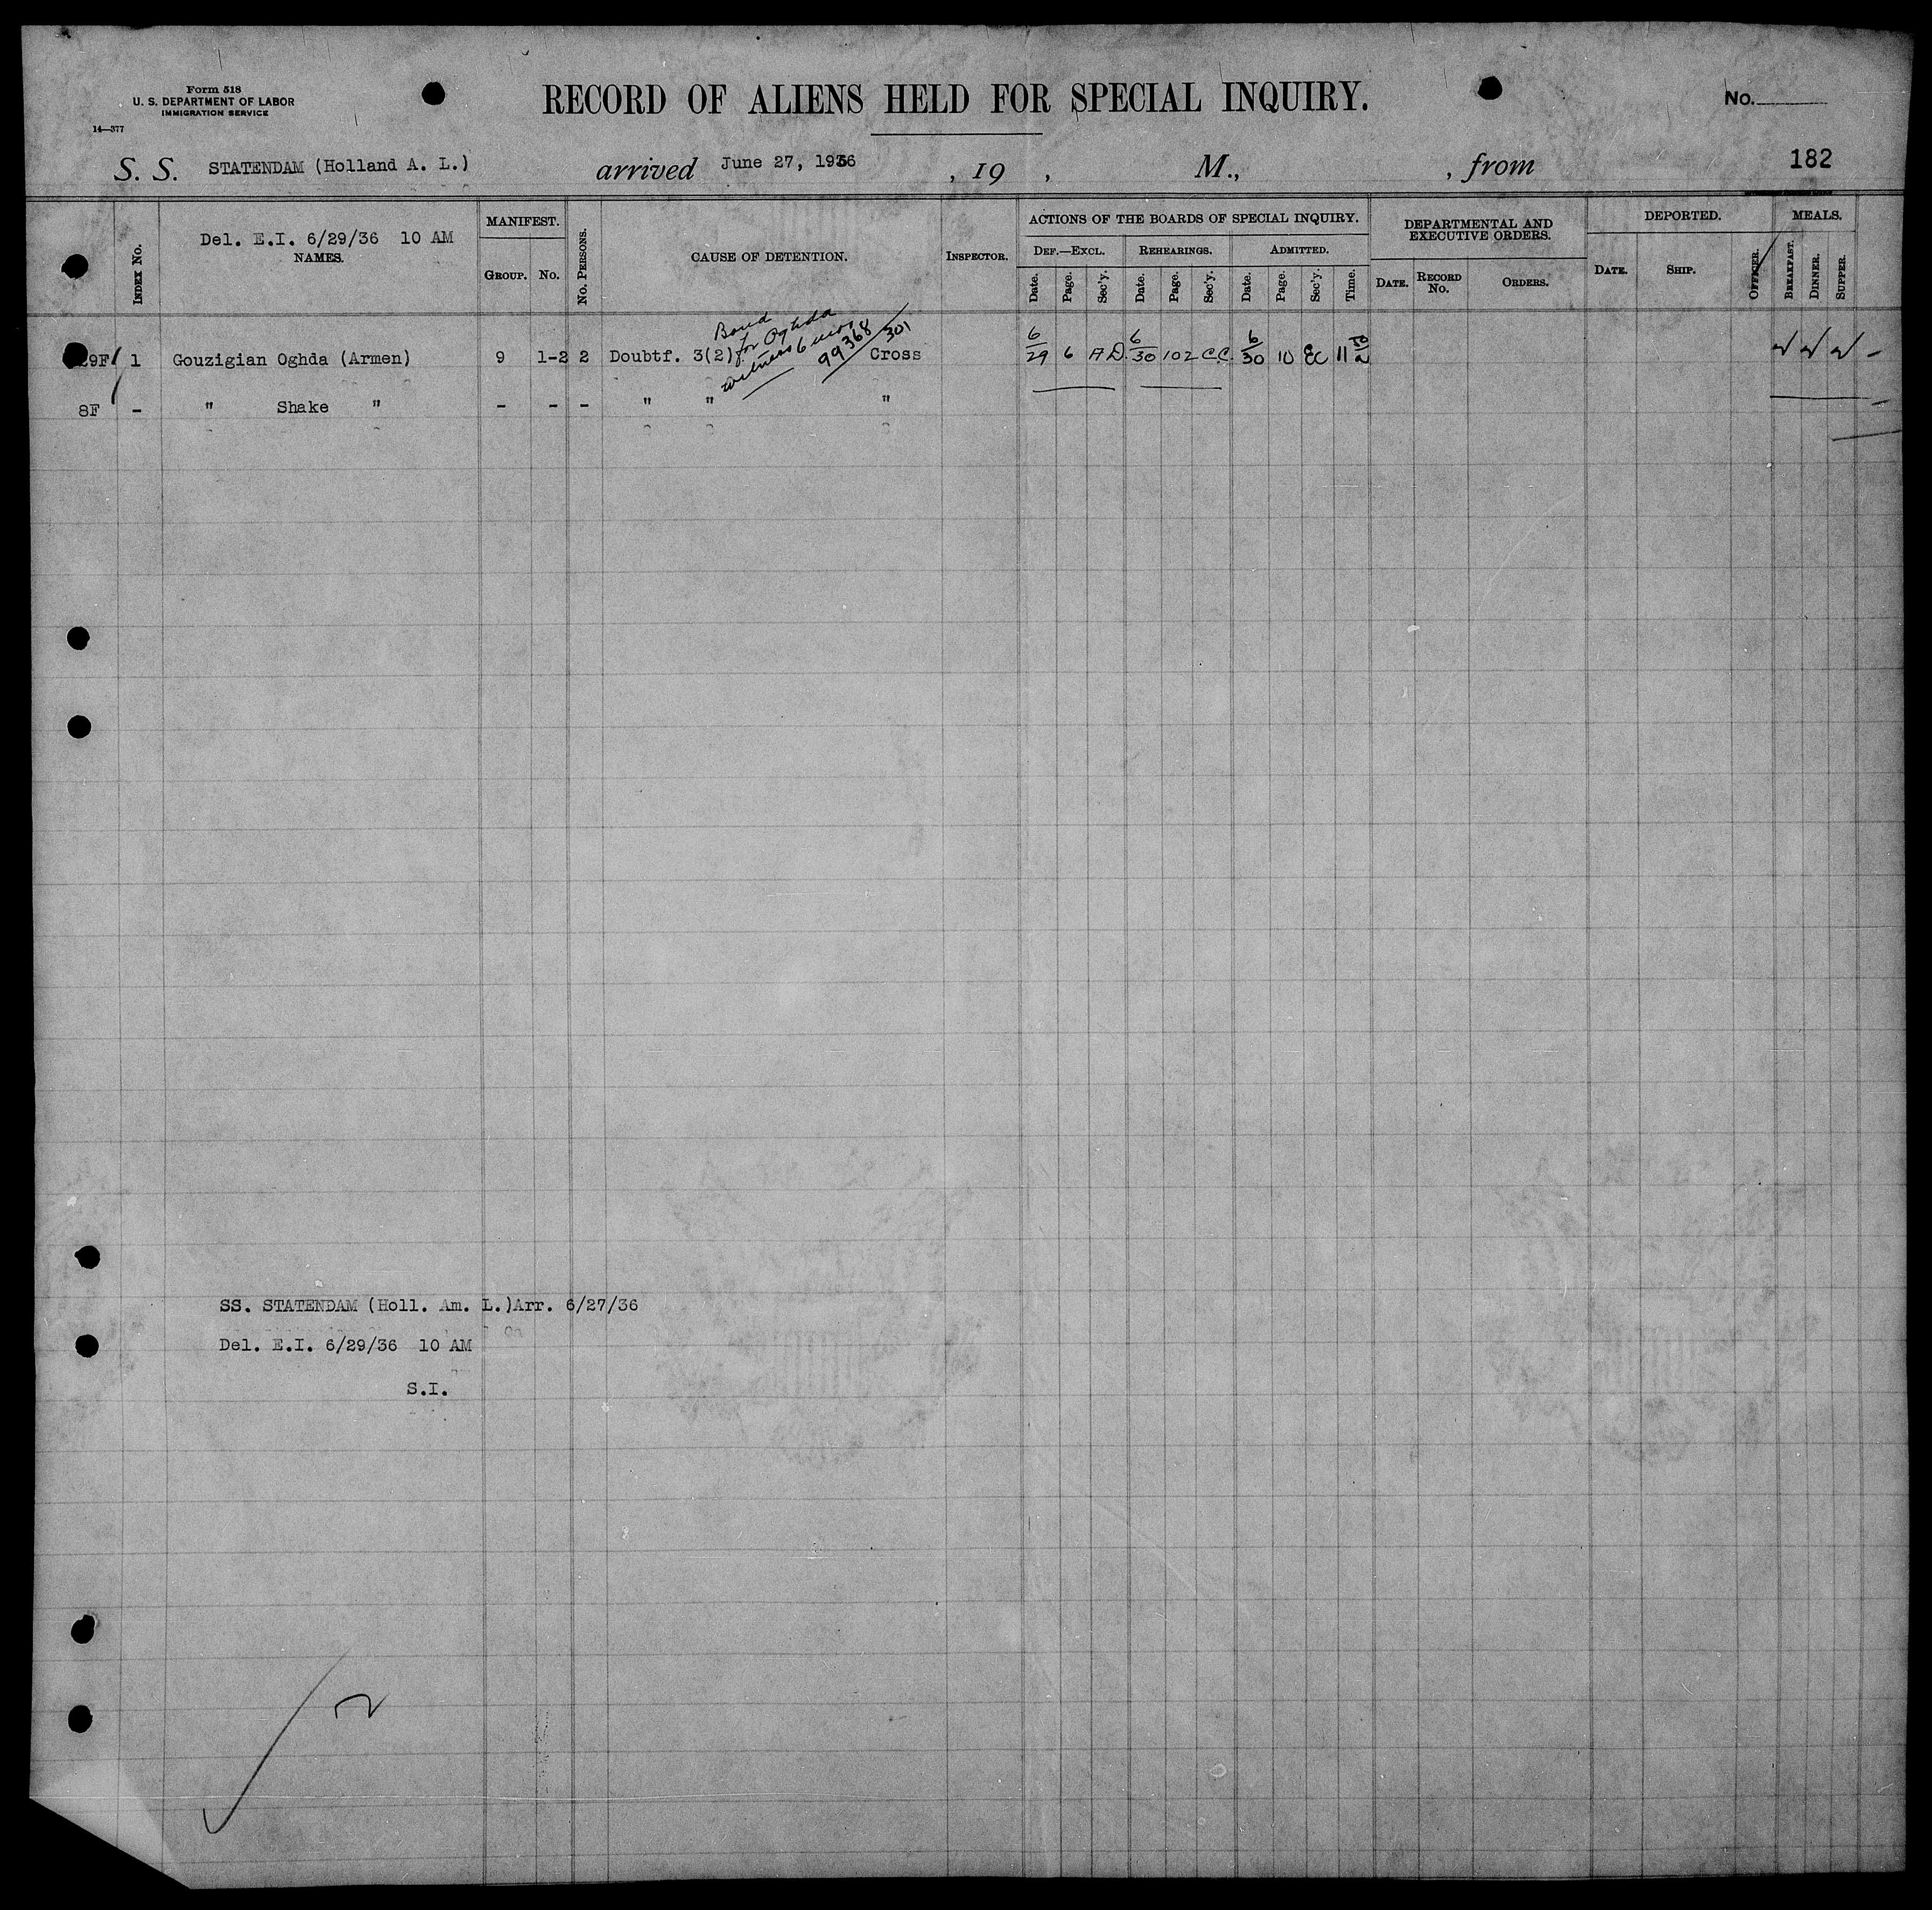 Form 518
U. S. DEPARTMENT OF LABOR
IMMIGRATION SERVICE
14—377
RECORD OF ALIENS HELD FOR SPECIAL INQUIRY.
No.
S. S. STATENDAM (Holland A. L.) arrived June 27, 1936 , 19 , M., , from 182
INDEX No.
Del. E.I. 6/29/36 10 AM
NAMES.
MANIFEST.
GROUP. No.
No. PERSONS.
CAUSE OF DETENTION.
INSPECTOR.
ACTIONS OF THE BOARDS OF SPECIAL INQUIRY.
DEF.—EXCL. REHEARINGS. ADMITTED.
Date. Page. Sec'y. Date. Page. Sec'y. Date. Page. Sec'y. Time.
DEPARTMENTAL AND EXECUTIVE ORDERS.
DATE. RECORD No. ORDERS.
DEPORTED.
DATE. SHIP. OFFICER.
MEALS.
BREAKFAST. DINNER. SUPPER.
Bond
for Oghda
witness 6 mos
99368
301
29F 1 Gouzigian Oghda (Armen) 9 1-2 2 Doubtf. 3(2) Cross 6/29 6 A.D. 6/30 102 C.C. 6/30 10 EC 11
8F - " Shake " - - - " " "
SS. STATENDAM (Holl. Am. L.)Arr. 6/27/36
Del. E.I. 6/29/36 10 AM
S.I.